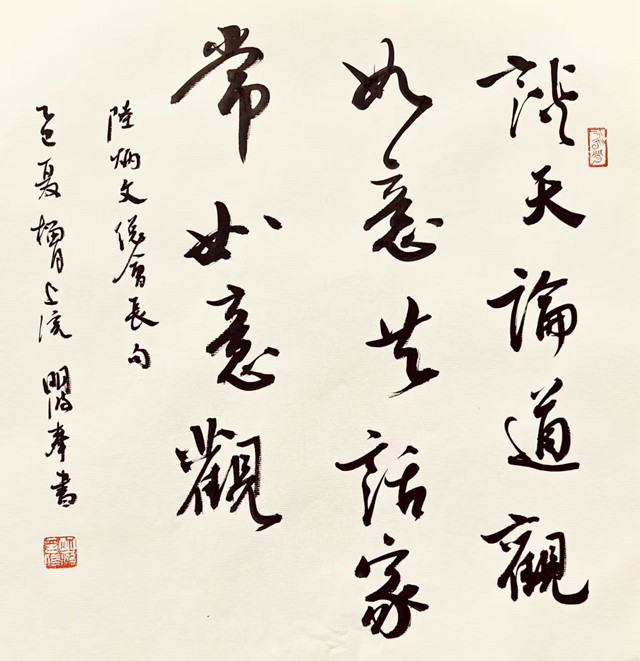 談天論道觀
如意共話家
常如意觀
陸炳文總會長句
乙巳夏榴月上浣 明 奉書